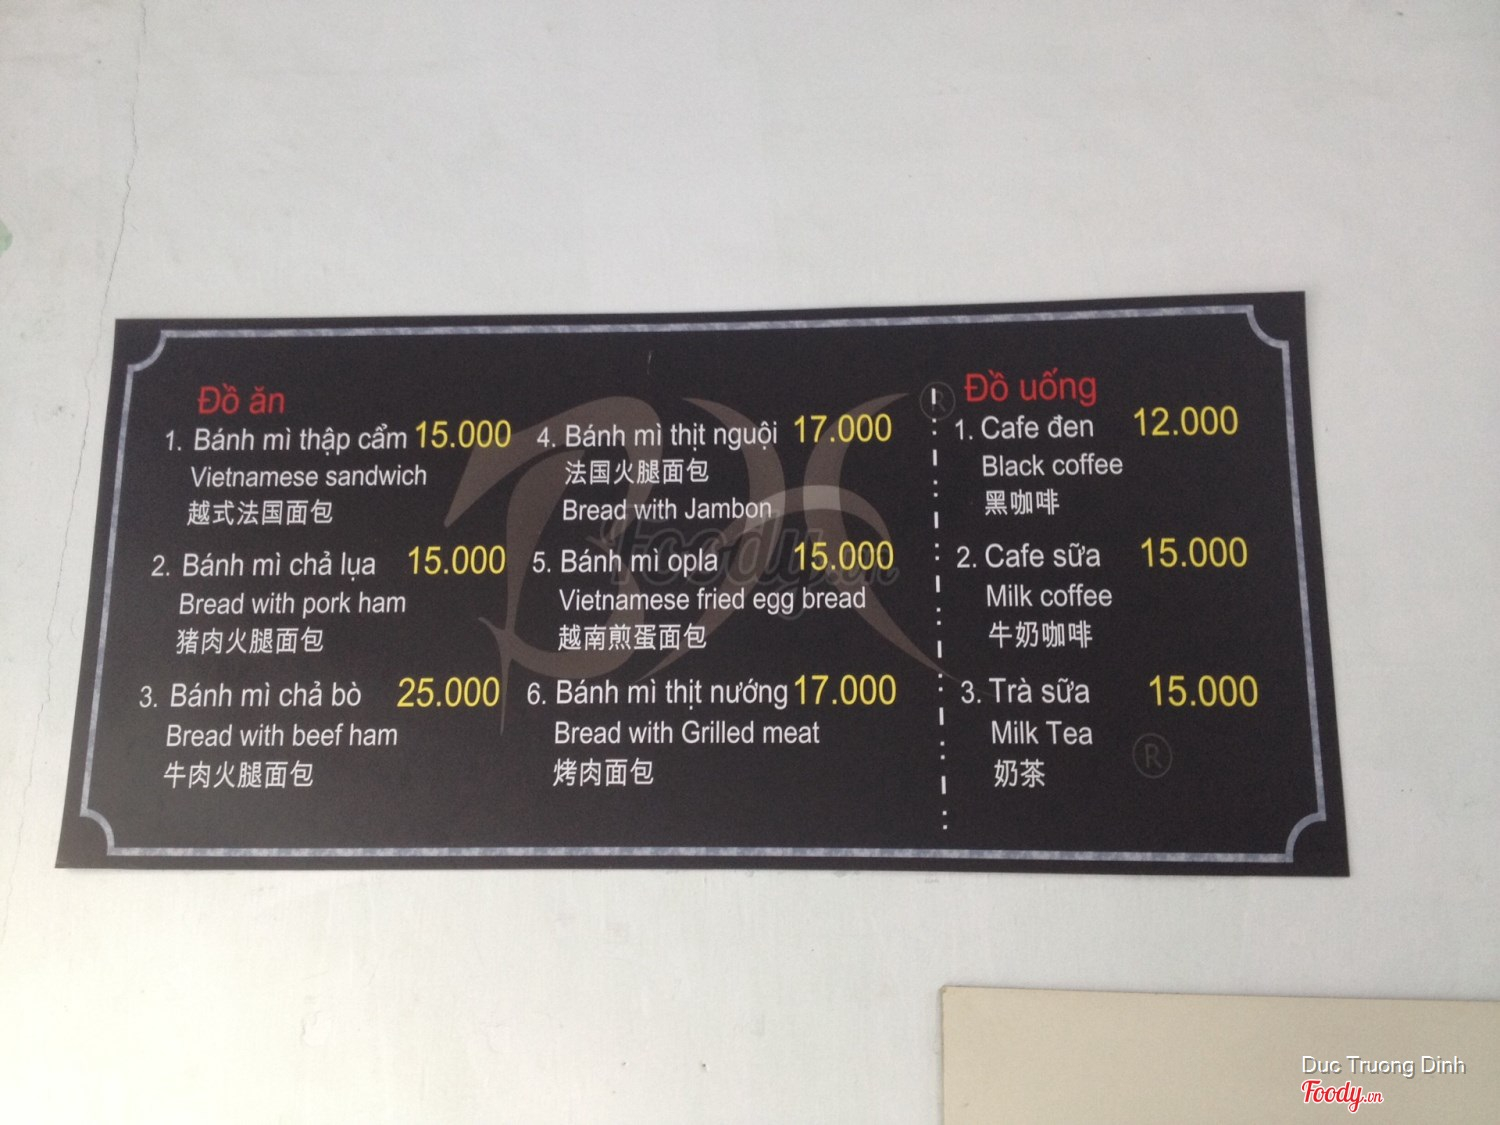 Đồ ăn
1. Bánh mì thập cẩm 15.000
Vietnamese sandwich
越式法国面包
2. Bánh mì chả lụa 15.000
Bread with pork ham
猪肉火腿面包
3. Bánh mì chả bò 25.000
Bread with beef ham
牛肉火腿面包
4. Bánh mì thịt nguội 17.000
法国火腿面包
Bread with Jambon
5. Bánh mì opla 15.000
Vietnamese fried egg bread
越南煎蛋面包
6. Bánh mì thịt nướng 17.000
Bread with Grilled meat
烤肉面包
Đồ uống
1. Cafe đen 12.000
Black coffee
黑咖啡
2. Cafe sữa 15.000
Milk coffee
牛奶咖啡
3. Trà sữa 15.000
Milk Tea
奶茶
®
®
Foody.vn
Duc Truong Dinh
Foody.vn